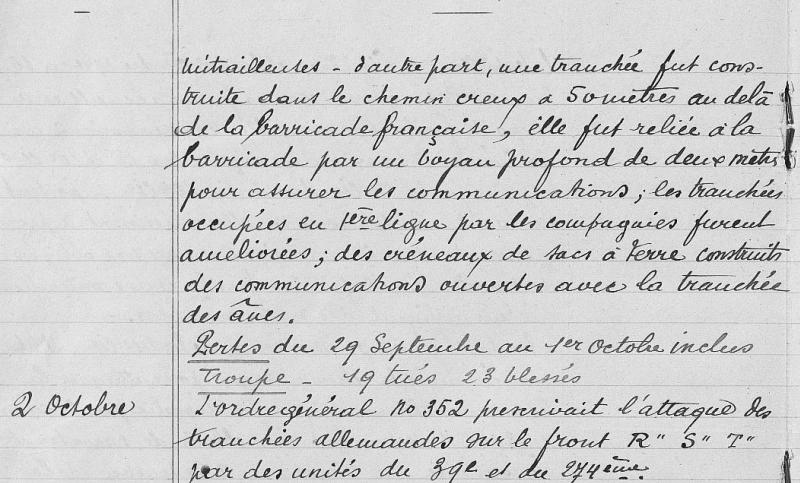 mitrailleuses - d'autre part, une tranchée fut cons-
truite dans le chemin creux à 50 mètres au delà
de la barricade française, elle fut reliée à la
barricade par un boyau profond de deux mètres
pour assurer les communications; les tranchées
occupées en 1ère ligne par les compagnies furent
améliorées; des créneaux de sacs à terre construits
des communications ouvertes avec la tranchée
des ânes.
Pertes du 29 Septembre au 1er Octobre inclus
Troupe - 19 tués 23 blessés
2 Octobre L'ordre général no 352 prescrivait l'attaque des
tranchées allemandes sur le front R" S" T"
par des unités du 39e et du 274ème.